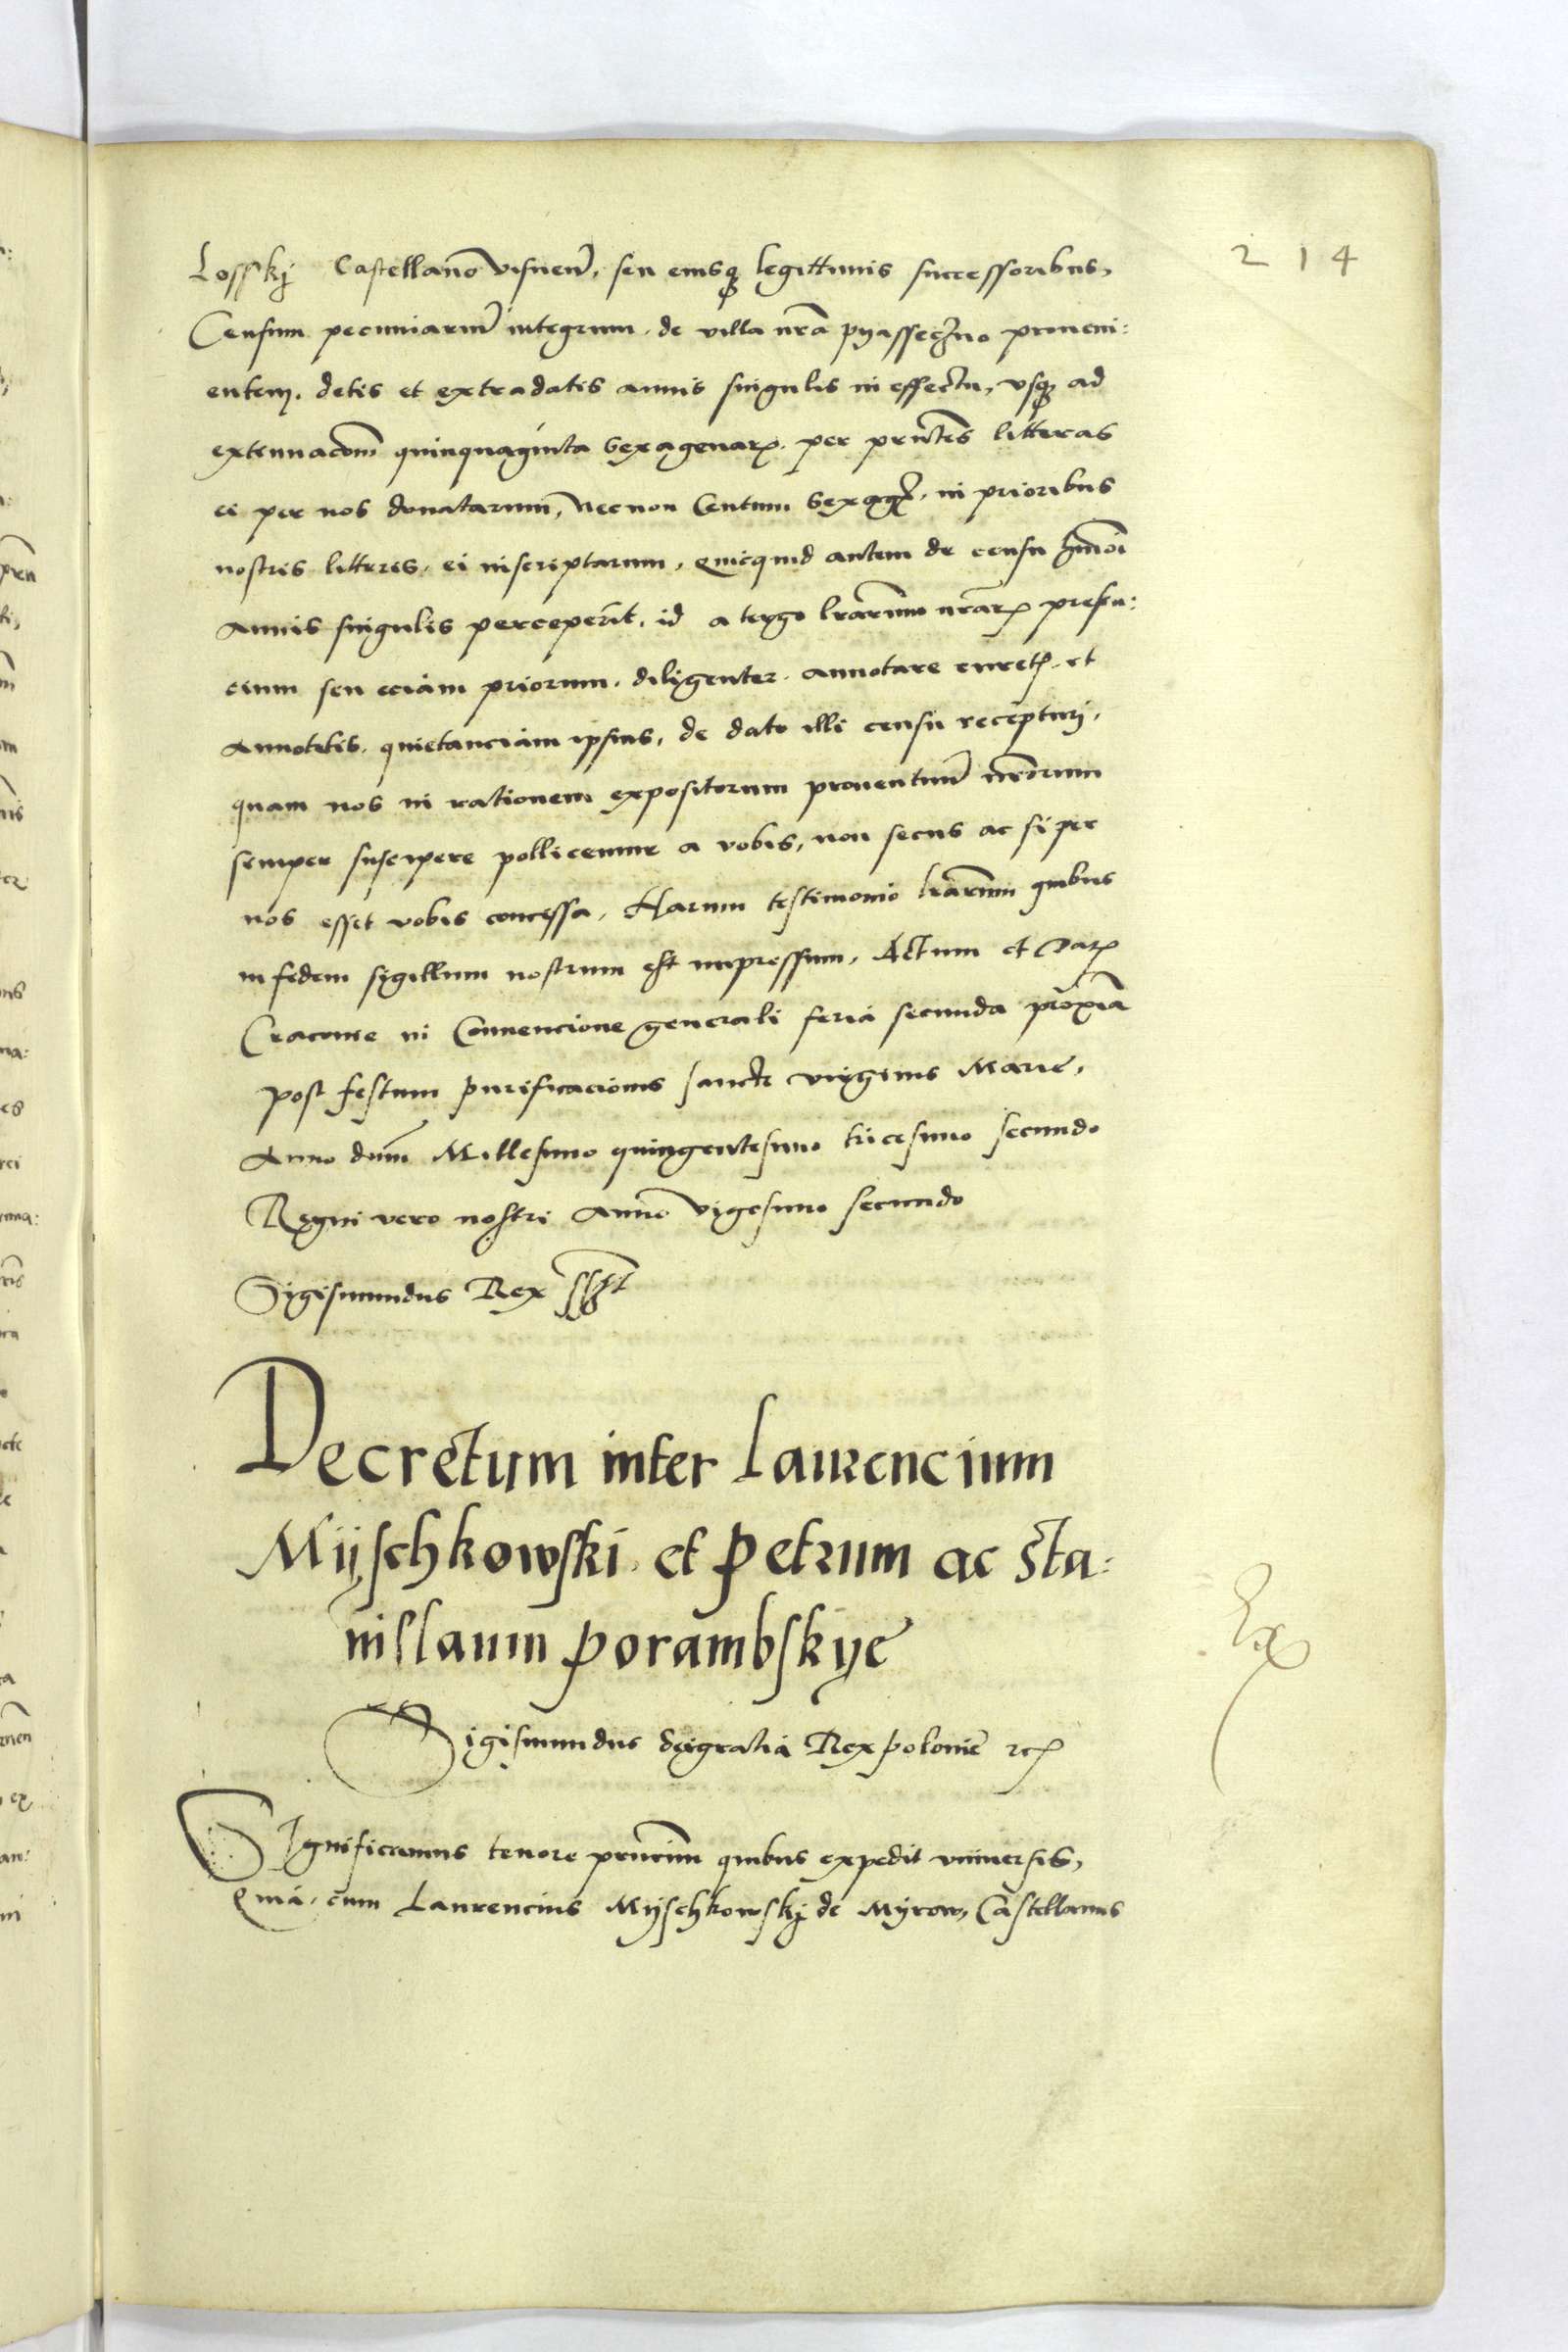 214
Losskÿ Castellano visnen̄, seu eiusqȝ legittimis successoribus,
Censum pecuniariu̅ integrum. de villa nr̅a pyassecżno proueni:
entem. detis et extradatis annis singulis in effectu, vsqȝ ad
extenuacōm quinquaginta sexagenarꝝ. per prn̅tes litteras
ei per nos donatarum, necnon Centum sexagꝝ. in prioribus
nostris litteris. ei inscriptarum, quicquid autem de censu hmōi
annis singulis perceperit. id a tergo lr̅arum nr̅arꝝ presen:
cium seu eciam priorum. diligenter annotare curetꝭ. et
annotetis. quietanciam ipsius, de dato illi censu recepturi,
quam nos in rationem expositorum prouentuu̅ nr̅orum
semper suscipere pollicemur a vobis, non secus ac si per
nos esset vobis concessa, Harum testimonio lr̅arum quibus
in fidem sigillum nostrum est impressum, Actum et Datꝭ
Cracouie in Conuencione generali feria secunda proxīa
post festum purificacionis sancte virginis Marie,
Anno dn̅m Millesimo quingentesimo tricesimo secundo
Regni vero nostri anno vigesimo secundo
Sigismundus Rex sszt
Decretum inter Laurencium
Mÿschkowski. et Petrum ac Sta:
nislaum Porambskye
Sigismundus deigratia Rex polonie ꝛcꝭ
Significamus tenore prn̅cium quibus expedit vniuersis,
Quia. cum Laurencius Mÿschkowskÿ de Myrow, Castellanus